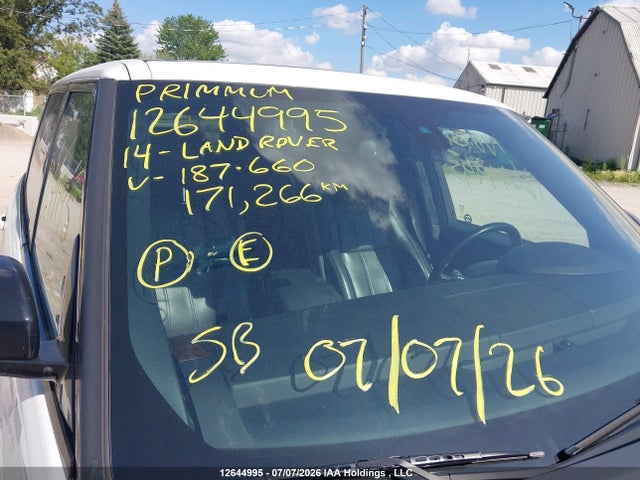 PRIMMUM
12644995
14-LAND ROVER
V-187-660
171,266 KM
P E
SB 07/07/26
12644995 - 07/07/2026 IAA Holdings , LLC